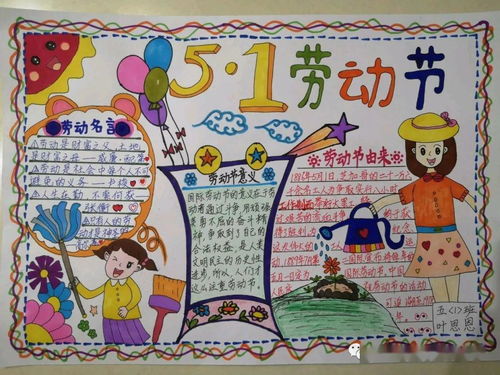 5·1 劳动节
劳动名言
△劳动是财富之父,土地
是财富之母——威廉·配第
△劳动是社会中每个人不可
避免的义务——卢梭
△人生在勤,不索何获
张衡
△只有人的劳
动才是神圣的
劳动节意义
国际劳动节的意义在于劳
动者通过斗争,用顽强、
英勇不屈的奋斗精神
争取到了自己的
合法权益,是人类
文明民主的历史性
进步,所以,人们才
这么注重劳动节。
劳动节由来
1886年5月1日,芝加哥的二十一万六
千余名工人为争取实行八小时
工作制而举行大罢工,经
过艰苦的流血斗争,终于
得了胜利。为
这次伟大的工
动,1889年7月
五月一日定为
国际劳动节。中国人民
劳动节的活动
可追溯至1918
五(1)班
叶思恩